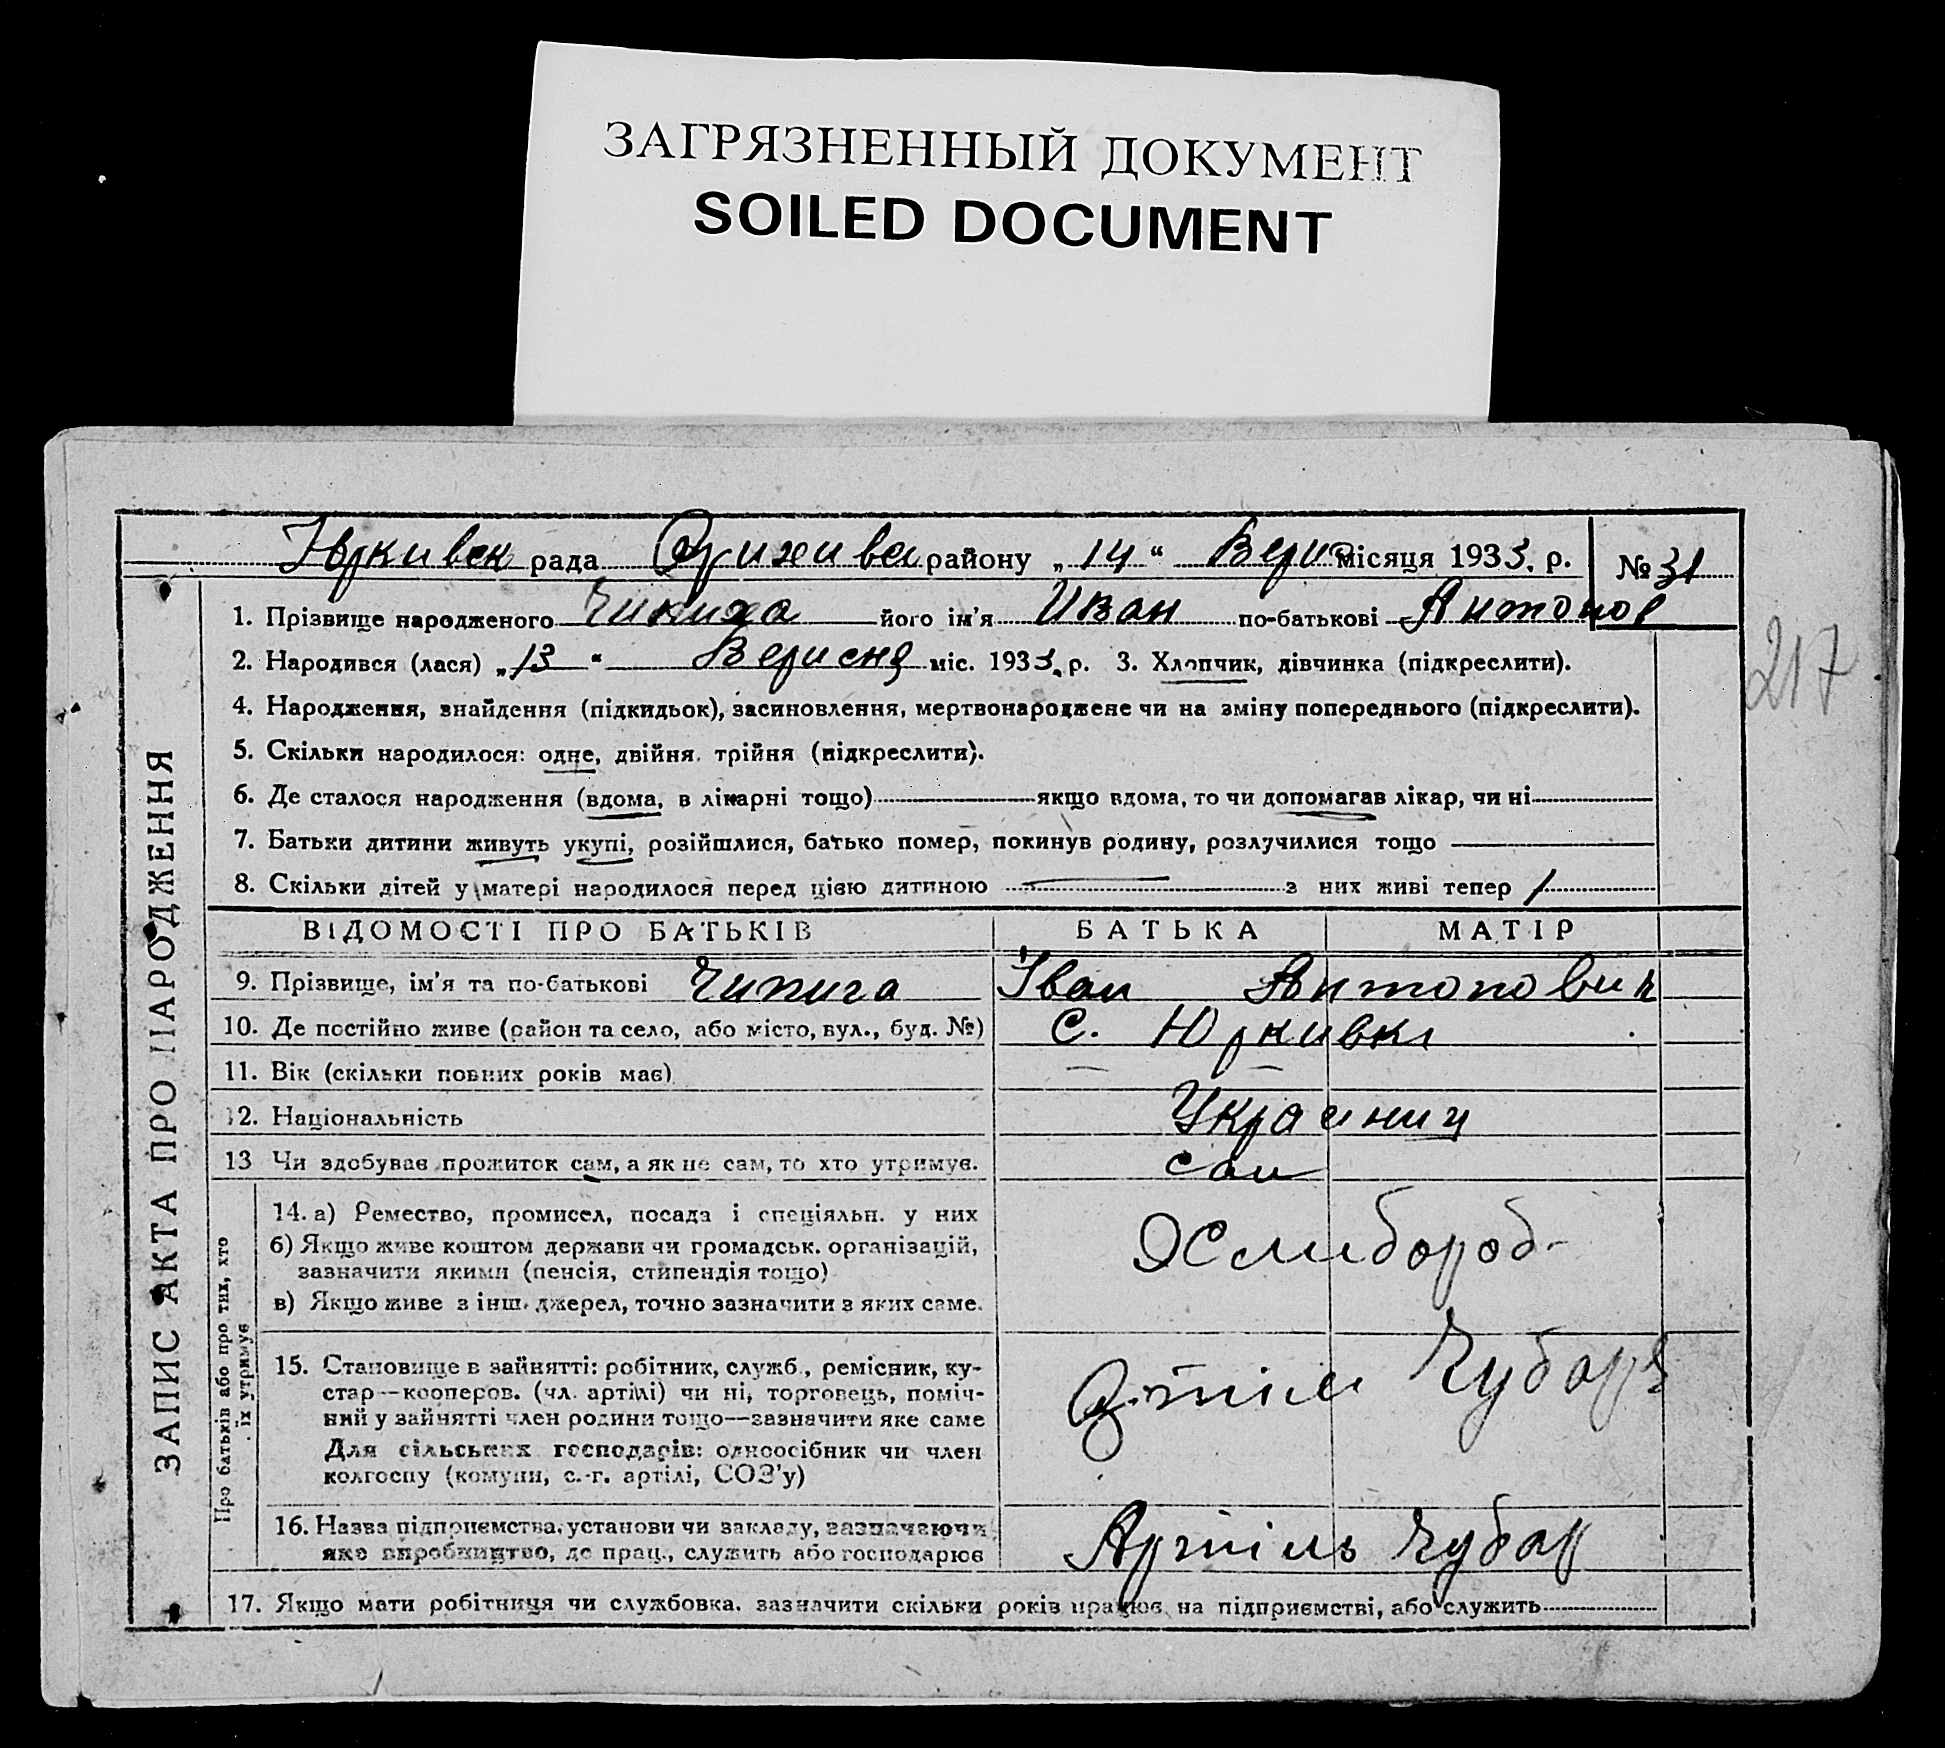 ЗАГРЯЗНЕННЫЙ ДОКУМЕНТ
SOILED DOCUMENT
Юркивск рада Оріхивск району „14“ Верис місяця 1933. р. № 31
1. Прізвище народженого Чипиха його ім'я Иван по-батькові Антонов
2. Народився (лася) „13“ Верисня міс. 1933. р. 3. Хлопчик, дівчинка (підкреслити).
217
4. Народження, знайдення (підкидьок), засиновлення, мертвонароджене чи на зміну попереднього (підкреслити).
5. Скільки народилося: одне, двійня, трійня (підкреслити).
6. Де сталося народження (вдома, в лікарні тощо) якщо вдома, то чи допомагав лікар, чи ні
7. Батьки дитини живуть укупі, розійшлися, батько помер, покинув родину, розлучилися тощо
8. Скільки дітей у матері народилося перед цією дитиною — з них живі тепер 1
ВІДОМОСТІ ПРО БАТЬКІВ БАТЬКА МАТІР
9. Прізвище, ім'я та по-батькові Чипига Іван Антонович
10. Де постійно живе (район та село, або місто, вул., буд. №) С. Юркивка
11. Вік (скільки повних років має) — —
12. Національність Украиниц
13 Чи здобуває прожиток сам, а як не сам, то хто утримує. сам
14. а) Ремество, промисел, посада і спеціяльн. у них Хлибороб
б) Якщо живе коштом держави чи громадськ. організацій,
зазначити якими (пенсія, стипендія тощо)
в) Якщо живе з інш. джерел, точно зазначити з яких саме.
15. Становище в зайнятті: робітник, служб., ремісник, ку-
стар—кооперов. (чл. артілі) чи ні, торговець, поміч- Чубаря
ний у зайнятті член родини тощо—зазначити яке саме
Для сільських господарів: одноосібник чи член
колгоспу (комуни, с.-г. артілі, СОЗ'у)
16. Назва підприємства, установи чи закладу, зазначаючи
яке виробництво, де прац., служить або господарює Артіль Чубар
17. Якщо мати робітниця чи службовка, зазначити скільки років працює на підприємстві, або служить
ЗАПИС АКТА ПРО НАРОДЖЕННЯ
Про батьків або про тих, хто
їх утримує